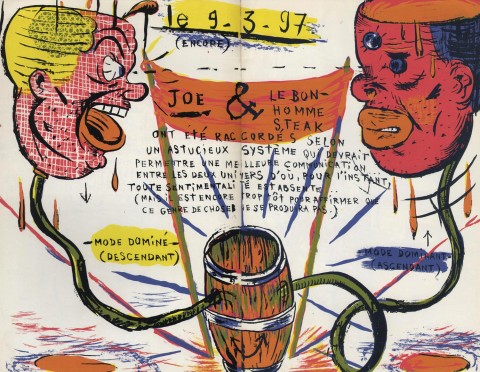 le 9-3-97
(ENCORE)
JOE & LE BON-
HOMME
STEAK
ONT ÉTÉ RACCORDÉS SELON
UN ASTUCIEUX SYSTÈME QUI DEVRAIT
PERMETTRE UNE MEILLEURE COMMUNICATION
ENTRE LES DEUX UNIVERS D'OÙ, POUR L'INSTANT,
TOUTE SENTIMENTALITÉ EST ABSENTE
(MAIS IL EST ENCORE TROP TÔT POUR AFFIRMER QUE
CE GENRE DE CHOSE NE SE PRODUIRA PAS.)
MODE DOMINÉ
(DESCENDANT)
MODE DOMINANT
(ASCENDANT)